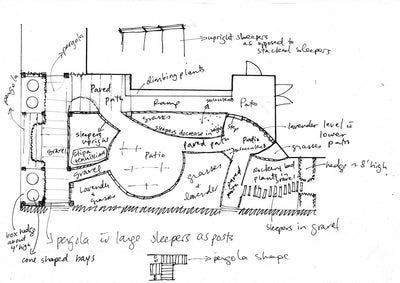 pergola
upright sleepers
as opposed to
stacked sleepers
pergola
climbing plants
Paved
path
Ramp
succulent
Patio
grasses
sleepers decrease in high
step
lavender level is
lower
grasses
path
sleepers
upright
Stipa
gravel
paved path
Patio
gravel
Patio
grasses
+
lavender
Lavender
+
grasses
paved
path
succulent bed
plants in
gravel
hedge is 8' high
box hedge
about
4' high
cone shaped bays
sleepers in gravel
pergola is large sleepers as posts
pergola shape